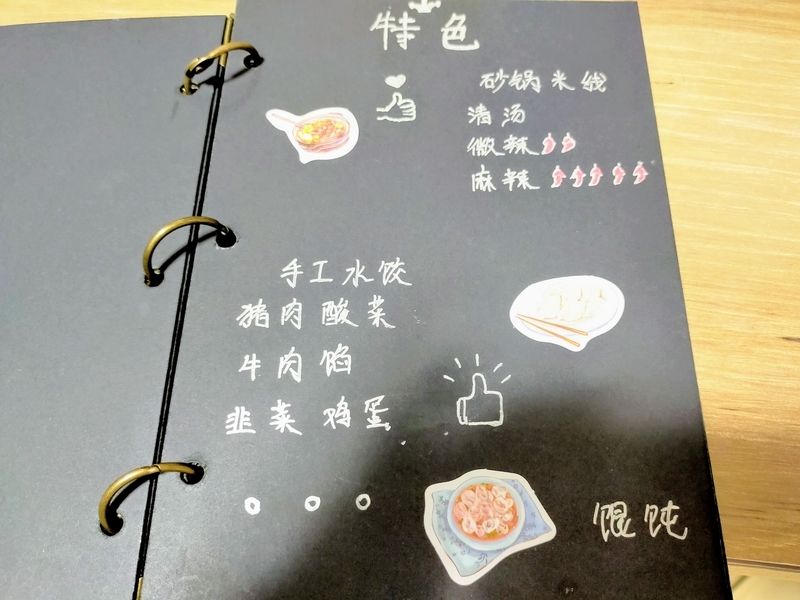 特色
砂锅米线
清汤
微辣
麻辣
手工水饺
猪肉酸菜
牛肉馅
韭菜鸡蛋
馄饨